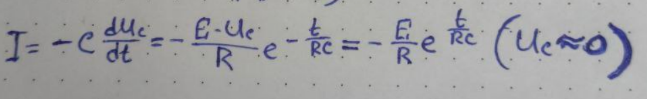 I = -C dUc/dt = - E-Uc/R e^-t/RC = - E/R e^t/RC (Uc≈0)